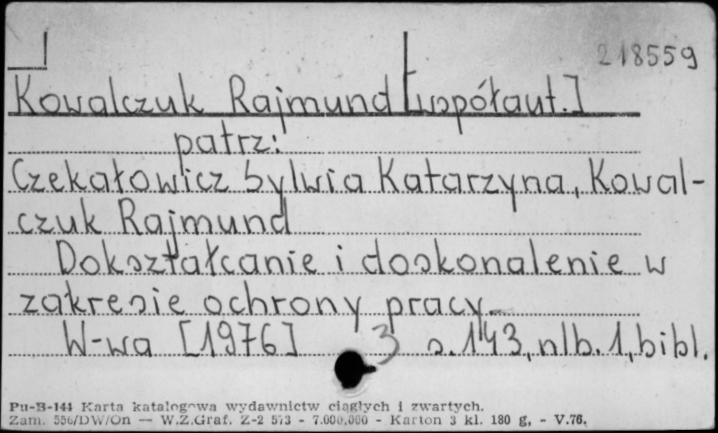 218559
Kowalczuk Rajmund [współaut.]
patrz:
Czekałowicz Sylwia Katarzyna, Kowal-
czuk Rajmund
Dokształcanie i doskonalenie w
zakresie ochrony pracy.
W-wa [1976] 3 s. 143, nlb. 1, bibl.
Pu-B-144 Karta katalogowa wydawnictw ciągłych i zwartych.
Zam. 556/DW/On — W.Z.Graf. Z-2 573 - 7.000.000 - Karton 3 kl. 180 g. - V.76.